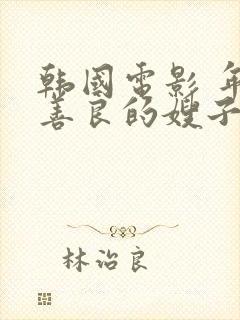 韩国电影 年
善良的嫂子
林治良